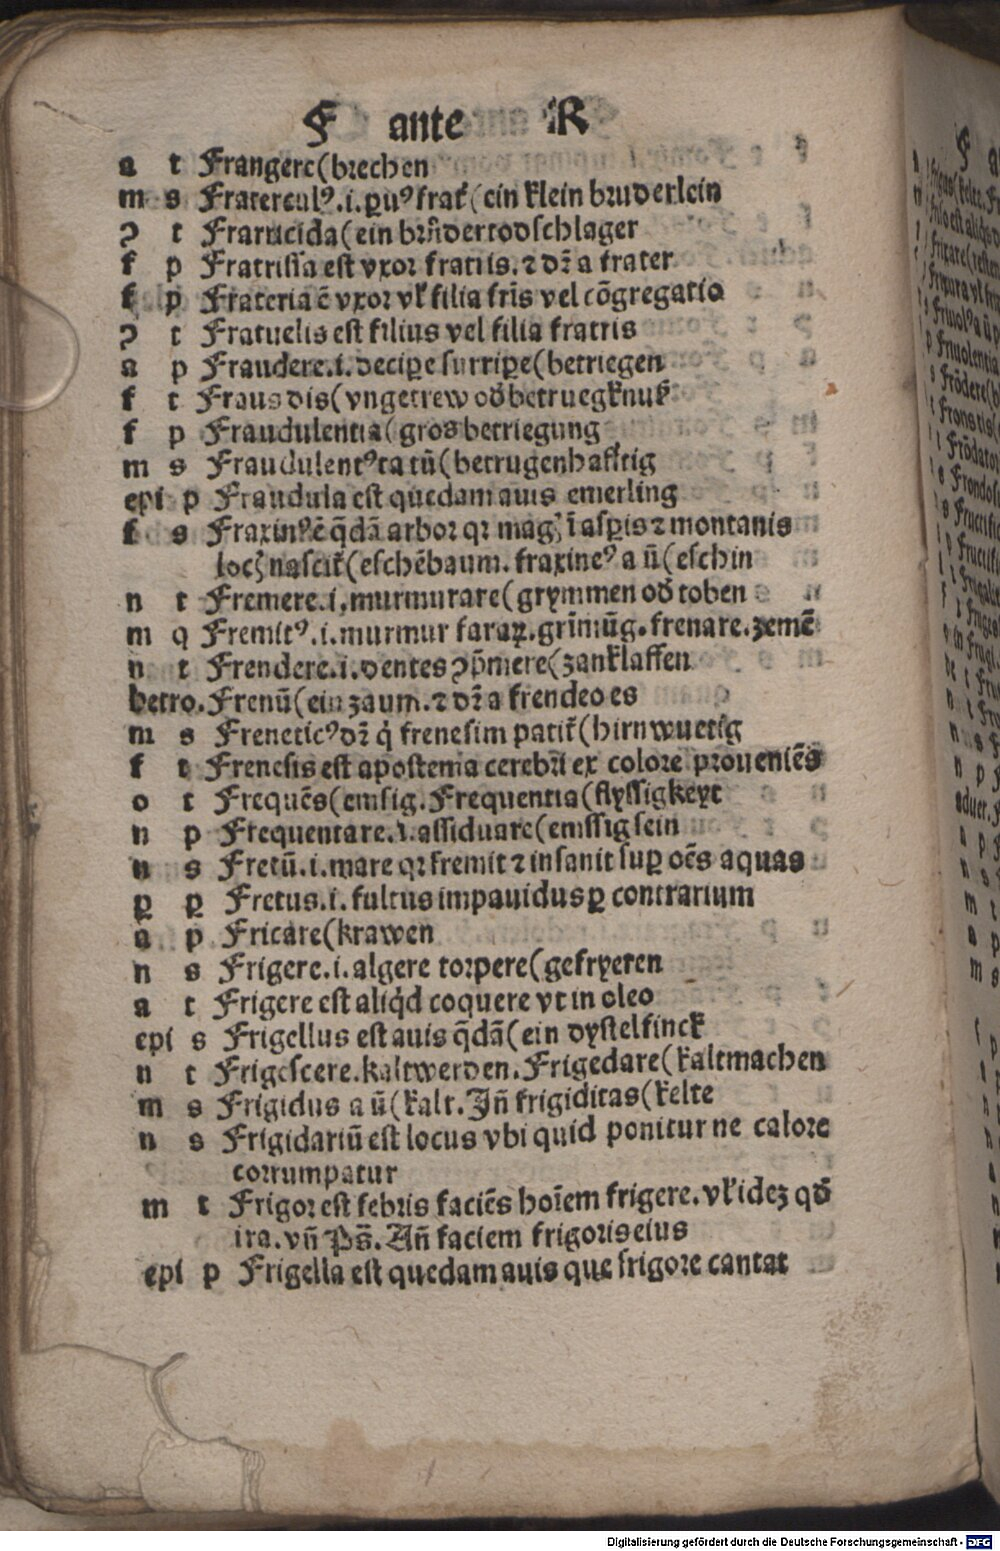 F ante R
a t Frangere(brechen
m s Fratercul⁹.i.ꝑuꝰ frat̃(ein klein bruderlein
ɔ t Fratricida(ein brůdertodschlager
f p Fratrissa est vxor fratris.⁊ dr̃ a frater
f p Frateria ē vxor vl̃ filia fr̄is vel cōgregatio
ɔ t Fratuelis est filius vel filia fratris
a p Fraudere.i.decipe surripe(betriegen
f t Fraus dis(vngetrew od̃ betruegknuß
f p Fraudulentia(gros betriegung
m s Fraudulent⁹ ta tū(betrugenhafftig
epi p Fraudula est quedam auis emerling
f s Fraxin⁹ ē q̄dā arbor qꝛ magꝫ ī aspis ⁊ montanis
locꝫ nascit̃(eschēbaum.fraxine⁹ a ū(eschin
n t Fremere.i.murmurare(grymmen od̃ toben
m q Fremit⁹.i.murmur faraꝝ.grīmūg.frenare.zemē
n t Frendere.i.dentes ɔp̄mere(zanklaffen
hetro.Frenū(ein zaum.⁊ dr̃ a frendeo es
m s Frenetic⁹ dr̃ q̇ frenesim patit̃(hirnwuetig
f t Frenesis est apostema cerebri ex colore proueniēs
o t Frequēs(emsig.Frequentia(flyssigkeyt
n p Frequentare.i.assiduare(emssig sein
n s Fretū.i.mare qꝛ fremit ⁊ insanit suꝑ oēs aquas
ꝑ ꝑ Fretus.i.fultus impauidus ꝑ contrarium
a p Fricare(krawen
n s Frigere.i.algere torpere(gefryeren
a t Frigere est aliq̇d coquere vt in oleo
epi s Frigellus est auis q̄dā(ein dystelfinck
n t Frigescere.kaltwerden.Frigedare(kaltmachen
m s Frigidus a ū(kalt.Jn̄ frigiditas(kelte
n s Frigidariū est locus vbi quid ponitur ne calore
corrumpatur
m t Frigor est febris faciēs hoīem frigere.vl̃ idez qd̃
ira.vn̄ Ps̄.An̄ faciem frigoris eius
epi p Frigella est quedam auis que frigore cantat
Digitalisierung gefördert durch die Deutsche Forschungsgemeinschaft - DFG